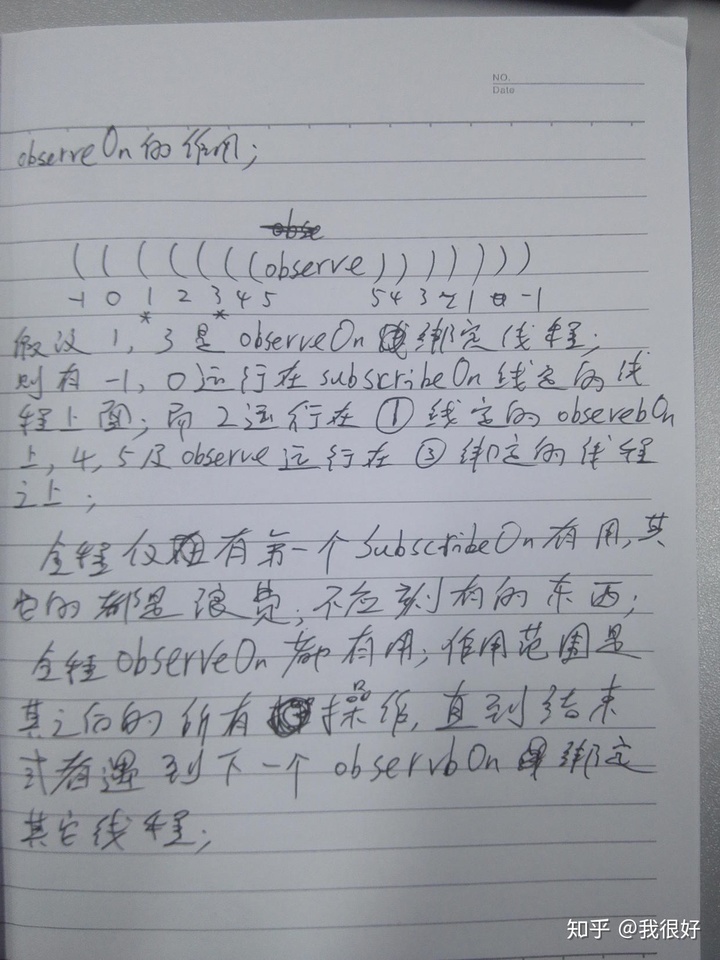 NO.
Date
observeOn的作用;
((((((((observe))))))))
-1 0 1 2 3 4 5 5 4 3 2 1 0 -1
* *
假设1,3是observeOn绑定线程;
则有-1,0运行在subscribeOn线定的线
程上面;而2运行在①线定的obserebOn
上,4,5及observe运行在③绑定的线程
之上;
全程仅有第一个SubscribeOn有用,其
它的都是浪费,不应刻有的东西;
全程observeOn都有用;作用范围是
其之后的所有操作,直到结束
或者遇到下一个observbOn绑定
其它线程;
知乎 @我很好